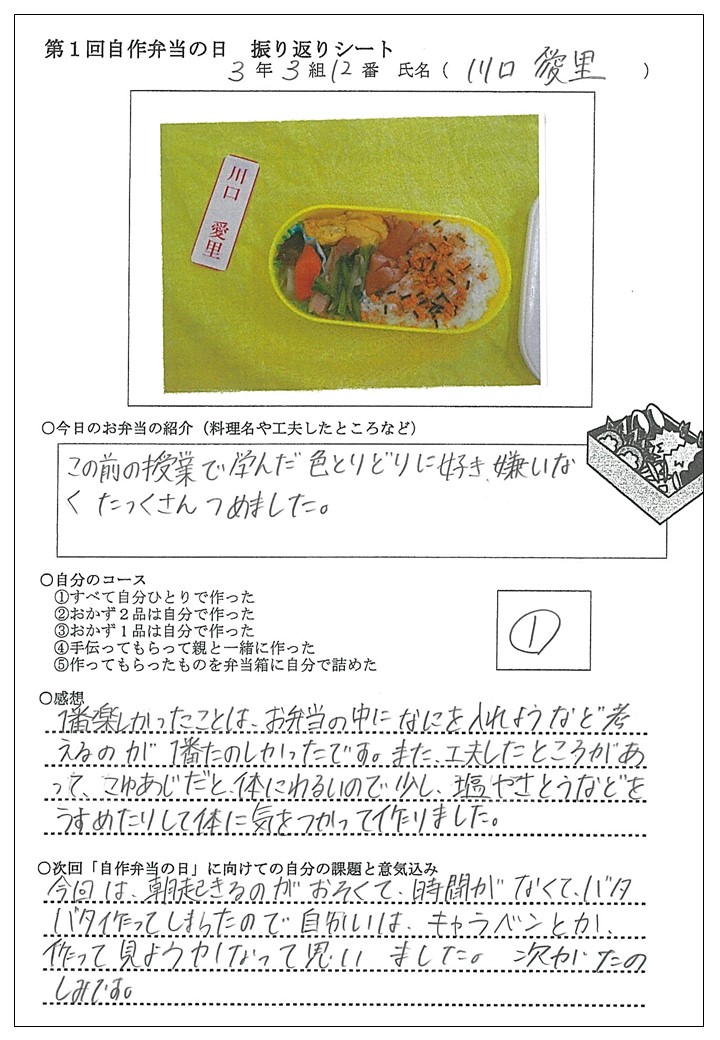 第1回自作弁当の日　振り返りシート
3年3組12番　氏名（川口 愛里　）
川口　愛里
○今日のお弁当の紹介（料理名や工夫したところなど）
この前の授業で学んだ色とりどりに好き、嫌いな
くたっくさんつめました。
○自分のコース
①すべて自分ひとりで作った
②おかず2品は自分で作った
③おかず1品は自分で作った
④手伝ってもらって親と一緒に作った
⑤作ってもらったものを弁当箱に自分で詰めた
①
○感想
1番楽しかったことは、お弁当の中になにを入れようなど考
えるのが1番たのしかったです。また、工夫したところがあ
って、こゆあじだと、体にわるいので少し、塩やさとうなどを
うすめたりして体に気をつかって作りました。
○次回「自作弁当の日」に向けての自分の課題と意気込み
今回は、朝起きるのがおそくて、時間がなくて、バタ
バタ作ってしまったので自分は、キャラベンとか、
作って見ようかなって思い ました。次がたの
しみです。